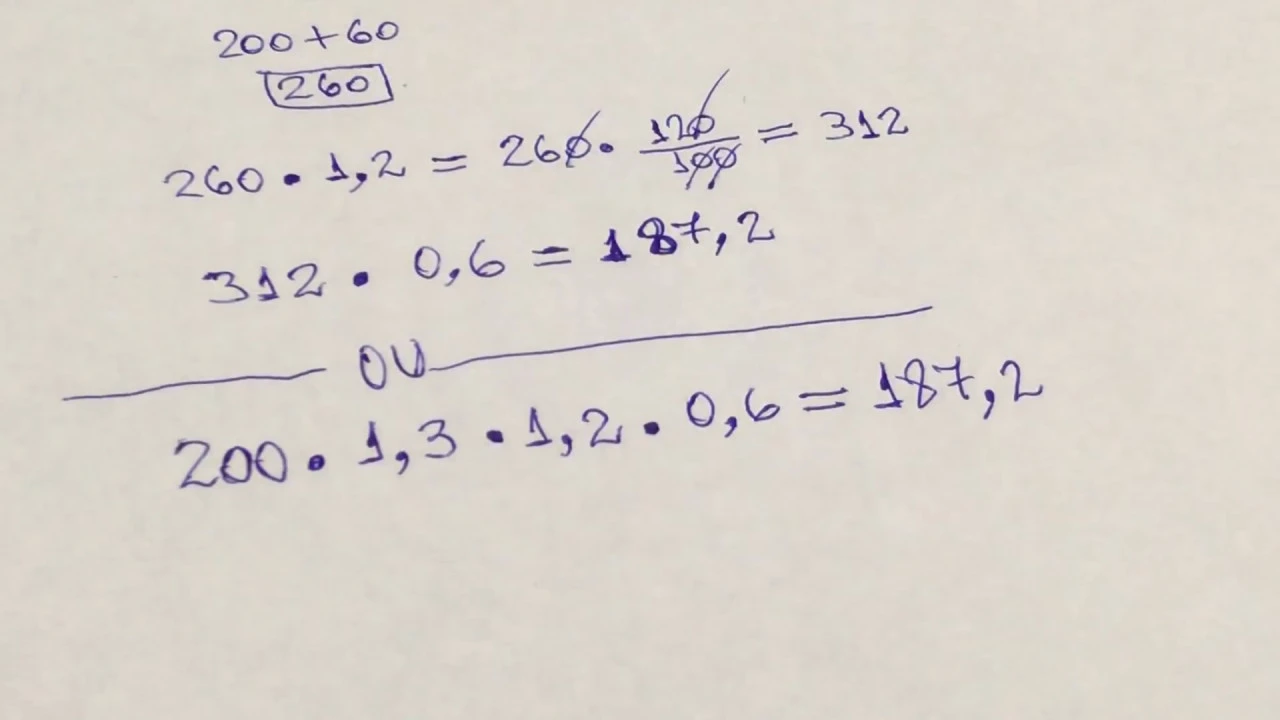 200 + 60
260
260 · 1,2 = 260 · 120/100 = 312
312 · 0,6 = 187,2
OU
200 · 1,3 · 1,2 · 0,6 = 187,2